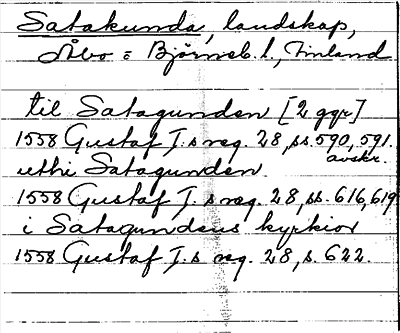 Satakunda, landskap,
Åbo = Björneb. l., Finland
til Satagunden [2 ggr]
1558 Gustaf I.s reg. 28, ss. 590, 591.
avskr.
uthi Satagunden
1558 Gustaf I.s reg. 28, ss. 616, 619
i Satagundens kyrkior
1558 Gustaf I.s reg. 28, s. 622.